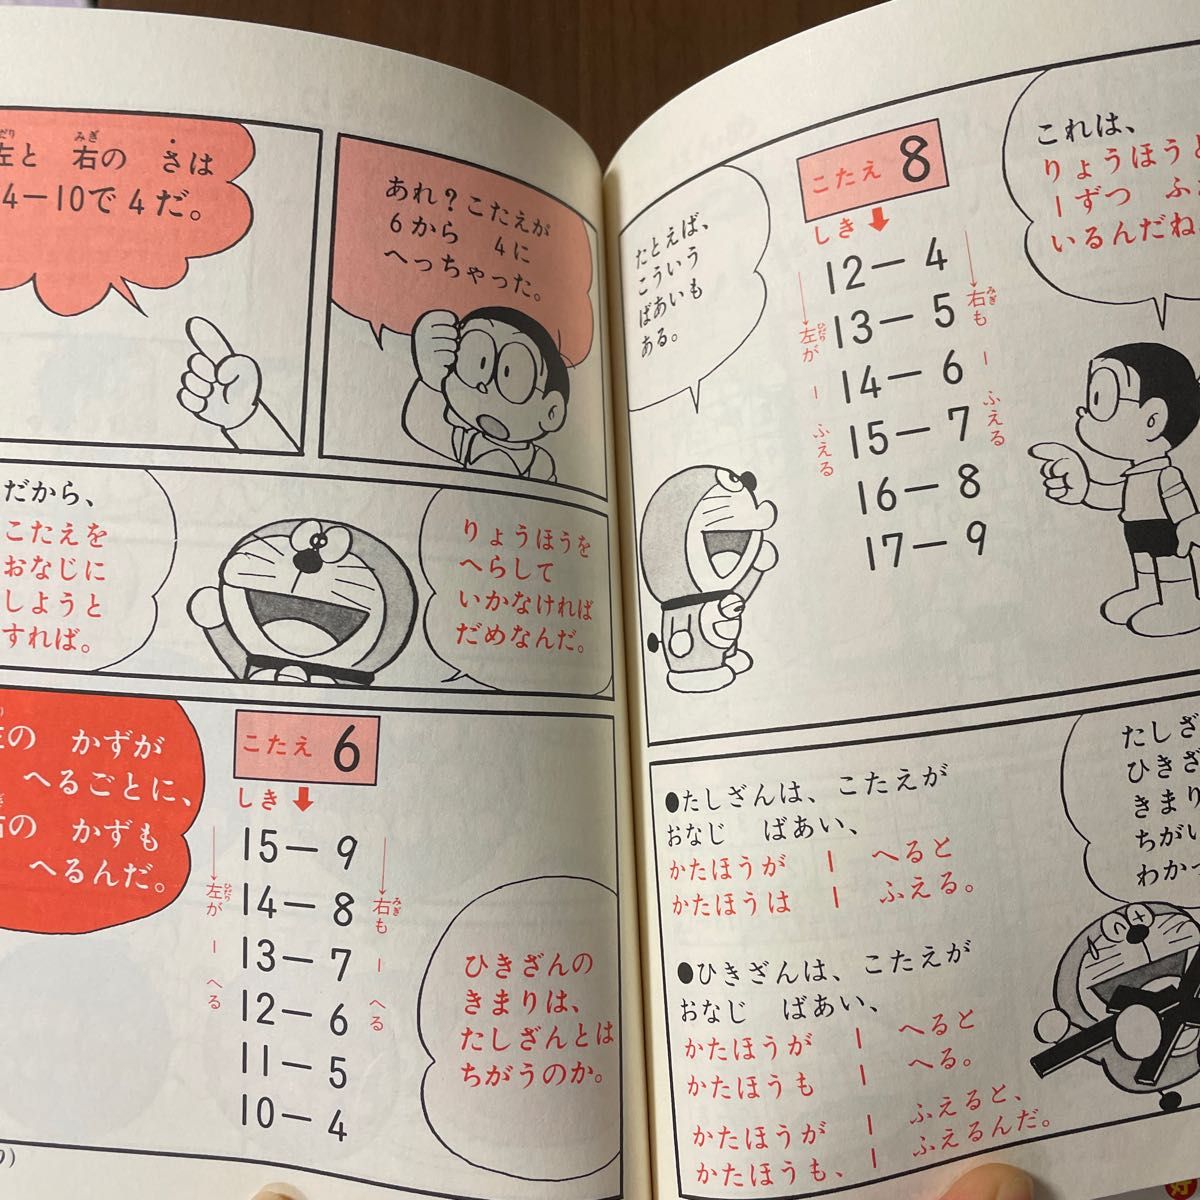 左と 右の さは
4−10で 4だ。
あれ?こたえが
6から 4に
へっちゃった。
だから、
こたえを
おなじに
しようと
すれば。
りょうほうを
へらして
いかなければ
だめなんだ。
の かずが
へるごとに、
の かずも
へるんだ。
こたえ 6
しき
15−9
14−8
13−7
12−6
11−5
10−4
左が 1 へる
右も 1 へる
ひきざんの
きまりは、
たしざんとは
ちがうのか。
たとえば、
こういう
ばあいも
ある。
こたえ 8
しき
12−4
13−5
14−6
15−7
16−8
17−9
左が 1 ふえる
右も 1 ふえる
これは、
りょうほうと
1ずつ ふ
いるんだね
●たしざんは、こたえが
おなじ ばあい、
かたほうが 1 へると
かたほうは 1 ふえる。
●ひきざんは、こたえが
おなじ ばあい、
かたほうが 1 へると
かたほうも 1 へる。
かたほうが 1 ふえると、
かたほうも、1 ふえるんだ。
たしざ
ひきざ
きまり
ちがい
わかっ